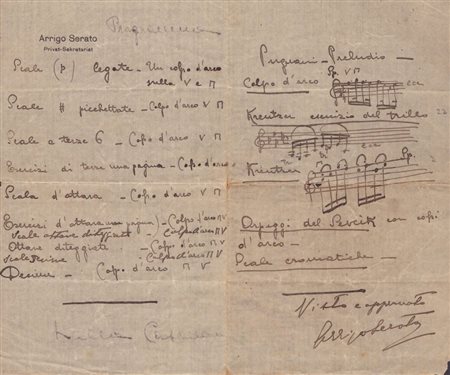 Arrigo Serato
Privat-Sekretariat
Programma
Scale (p) legate - Un colpo d'arco
sulla V e Π
Scale # picchettate - Colpo d'arco V Π
Scale a terze 6 - Colpo d'arco V Π
Esercizi di terze una pagina - Colpo d'arco
Scala d'ottava - Colpo d'arco V Π
Esercizi d'ottava (una pagina) - Colpo d'arco Π V
Scale ottave - Colpo d'arco Π V
Ottave diteggiate - Colpo d'arco Π V
Scale - Colpo d'arco Π V
Decime - Colpo d'arco Π V
Pugnani - Preludio -
Colpo d'arco Sp. V Π ecc
Kreutzer esercizio del trillo
ecc
Kreutzer Sp.
Arpeggi del Sevcik con colpi
d'arco -
Scale cromatiche -
Visto e approvato
Arrigo Serato